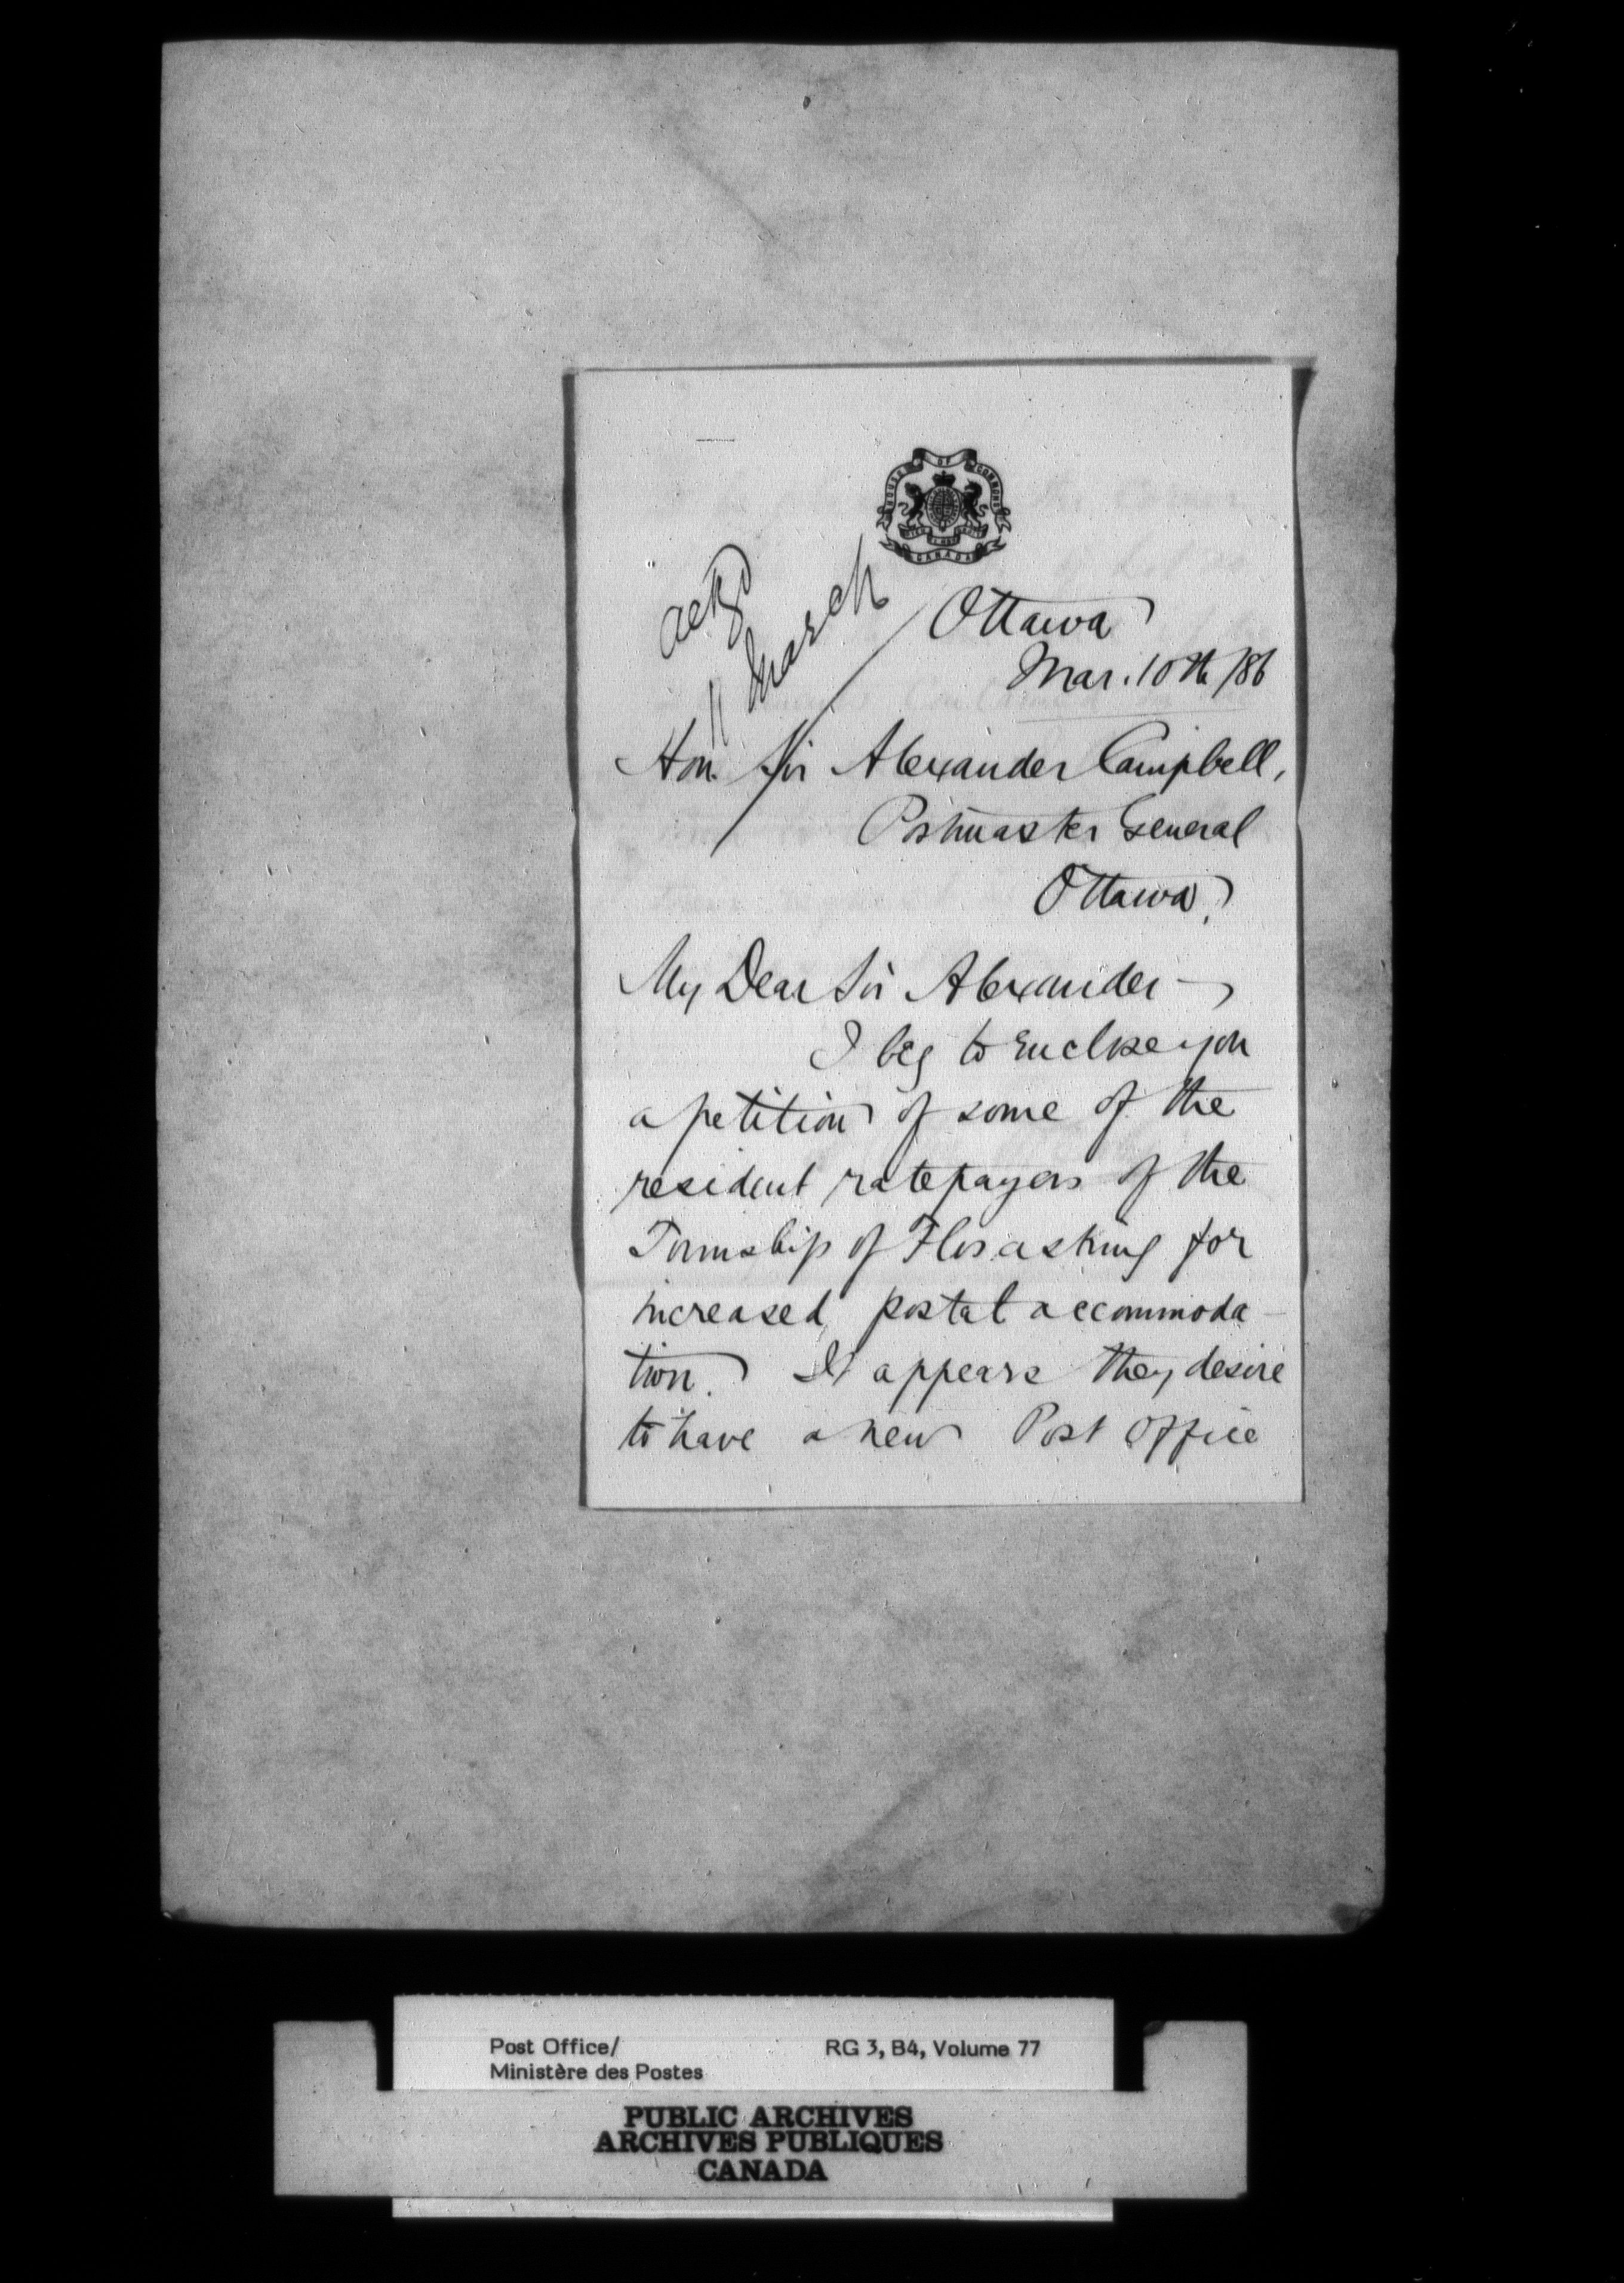 HOUSE OF COMMONS
CANADA
Ackd
11 March
Ottawa
Mar. 10th /86
Hon. Sir Alexander Campbell,
Postmaster General
Ottawa.
My Dear Sir Alexander —
I beg to enclose you
a petition of some of the
resident ratepayers of the
Township of Flos asking for
increased postal accommoda-
tion. It appears they desire
to have a new Post Office
Post Office/
Ministère des Postes
RG 3, B4, Volume 77
PUBLIC ARCHIVES
ARCHIVES PUBLIQUES
CANADA